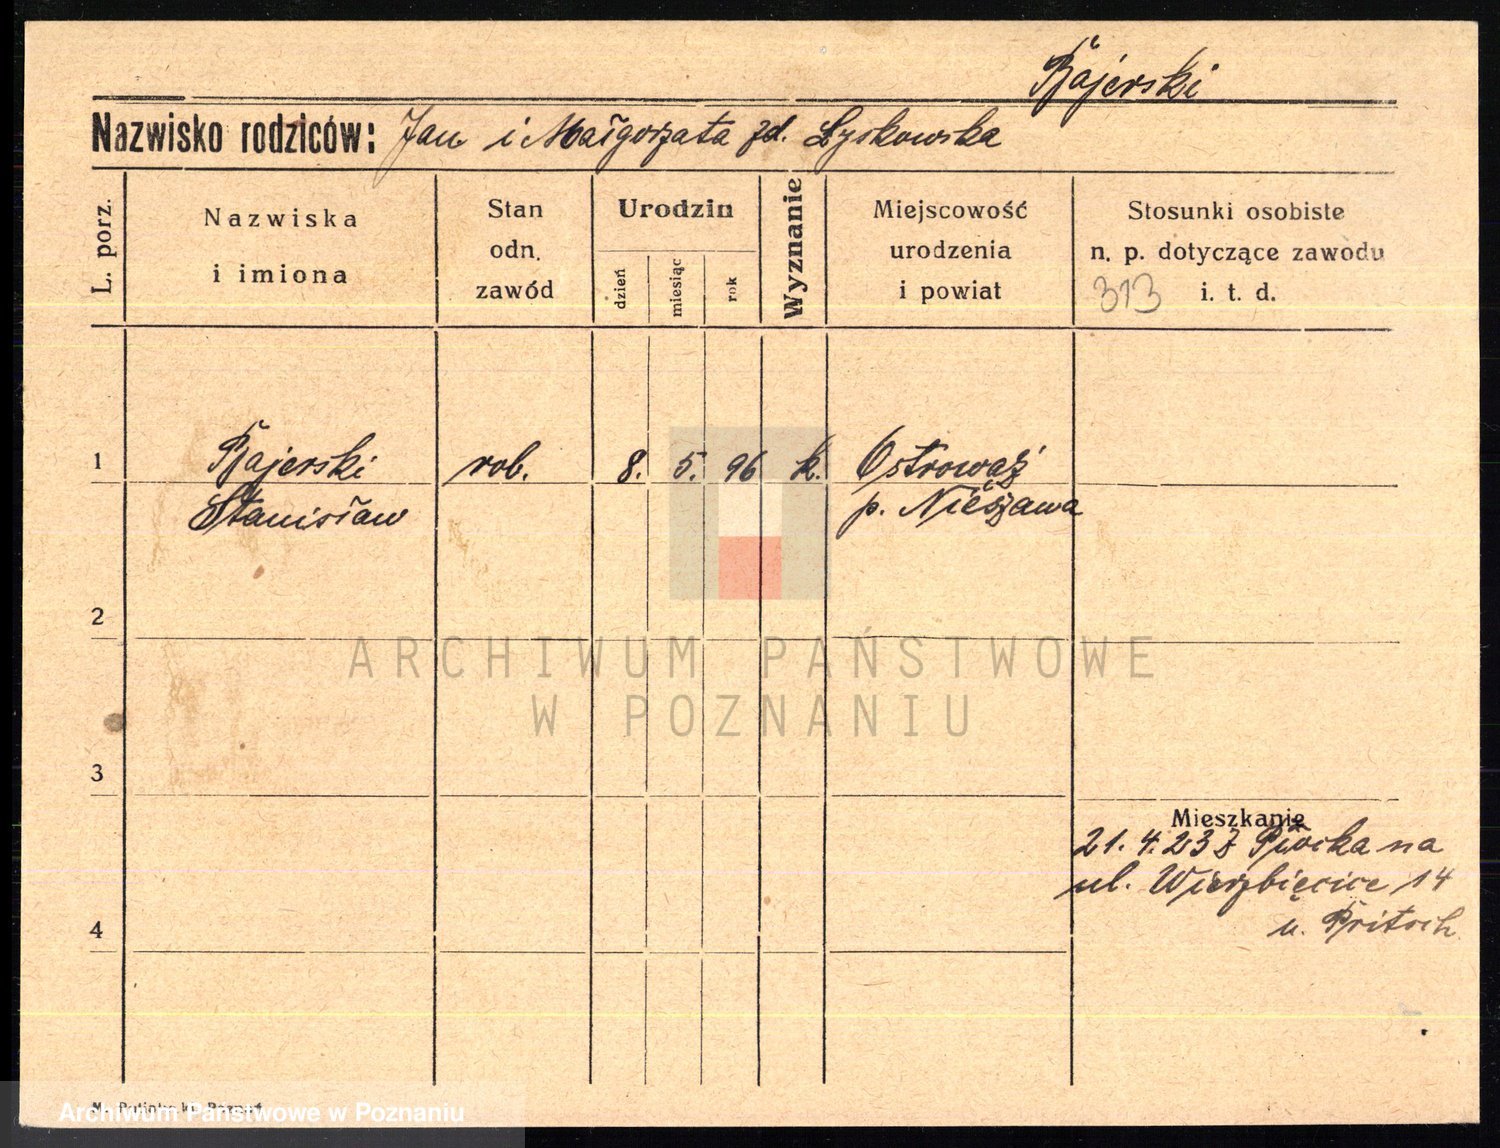 Bajerski
Nazwisko rodziców: Jan i Małgorzata zd. Lyskowska
L. porz.
Nazwiska
i imiona
Stan
odn.
zawód
Urodzin
dzień
miesiąc
rok
Wyznanie
Miejscowość
urodzenia
i powiat
Stosunki osobiste
n. p. dotyczące zawodu
313 i. t. d.
1 Bajerski rob. 8. 5. 96 k. Ostrowąż
Stanisław p. Nieszawa
2
ARCHIWUM PAŃSTWOWE
W POZNANIU
3
Mieszkanie
21. 4. 23 z na
ul. Wierzbięcice 14
4
u.
Archiwum Państwowe w Poznaniu